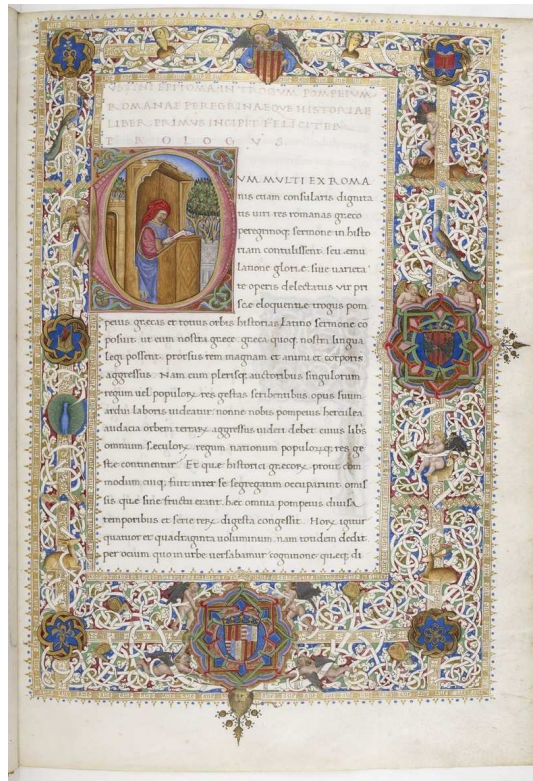 USTINI EPITOMA IN TROGUM POMPEIUM
ROMANAE PEREGRINAEQUE HISTORIAE
LIBER PRIMUS INCIPIT FELICITER
PROLOGUS
UM MULTI EX ROMA
nis etiam consularis dignita
tis uiri res romanas græco
peregrinoq; sermone in histo
riam contulissent: seu æmu
latione gloriæ siue uarieta
te operis delectatus vir pri
scæ eloquentiæ trogus pom
peius græcas et totius orbis historias latino sermone co
posuit: ut cum nostra græce græca quoq; nostra lingua
legi possent: prorsus rem magnam et animi et corporis
aggressus. Nam cum plerisq; auctoribus singulorum
regum uel populoꝝ res gestas scribentibus opus suum
ardui laboris uideatur: nonne nobis pompeius herculea
audacia orbem terraꝝ aggressus uideri debet cuius libris
omnium sæculoꝝ regum nationum populoꝝq; res ge
stæ continentur. Et quæ historici græcoꝝ prout com
modum cuiq; fuit inter se segregatim occupauerunt omis
sis quæ sine fructu erant: hæc omnia pompeius diuisa
temporibus et serie reꝝ digesta congessit. Hoꝝ igitur
quatuor et quadraginta uoluminum nam totidem dedit
per ocium quo in urbe uersabamur cognitione quæq; di